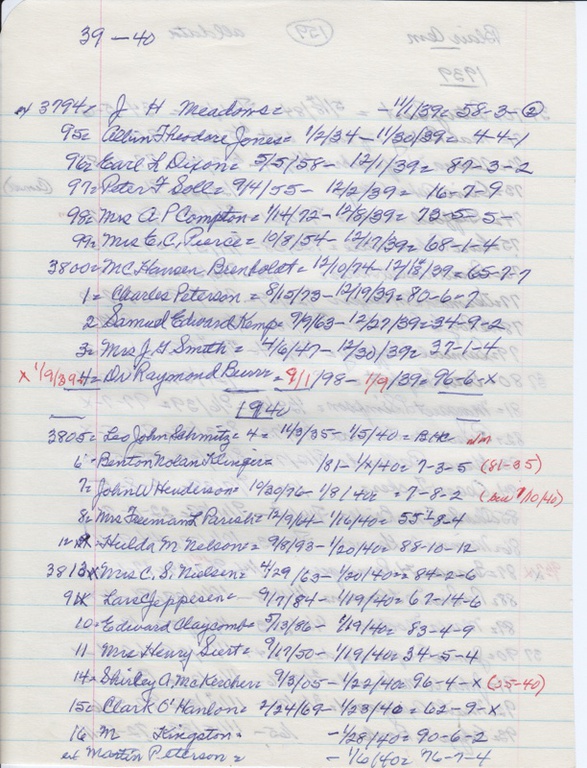 39 - 40
3794x J H Meadows = - 11/1/39 = 58-3-②
95 = Allin Theodore Jones = 1/2/34 - 11/30/39 = 4-4-1
96 = Earl L Dixon = 5/5/58 - 12/1/39 = 87-3-2
97 = Peter F Soll = 9/4/55 - 12/2/39 = 16-7-9
98 = Mrs A P Compton = 1/14/72 - 12/8/39 = 73-5-5-
99 = Mrs E. C. Pierce = 10/8/54 - 12/17/39 = 68-1-4
3800 = MC Hansen = 12/10/74 - 12/18/39 = 65-7-7
1 = Charles Peterson = 8/15/73 - 12/19/39 = 80-6-7
2 Samuel Edward Kemp = 9/9/63 - 12/27/39 = 34-9-2
3 = Mrs J. G. Smith = 4/6/47 - 12/30/39 = 37-1-4
x 1/9/39 4 = Dr Raymond Burr = 9/1/98 - 1/9/39 = 96-6-x
1940
3805 = Leo John Schmitz = 4 = 11/3/35 - 1/5/40 =
6 = Benton Nolan Klinger = /81 - 1/x/40 = 7-3-5 (81-35)
7 = John W Henderson = 10/30/76 - 1/8/40 = 7-8-2 ( 1/10/40)
8 = Mrs Freeman L Parish = 12/9/64 - 1/16/40 = 55-8-4
12 = Hulda M Nelson = 9/8/93 - 1/20/40 = 88-10-12
3813x Mrs C. S. Nielsen = 4/29/63 - 1/20/40 = 84-2-6
9 Lars Jeppesen = 9/7/84 - 1/19/40 = 67-14-6
10 = Edward Claycomb = 5/13/86 - 1/19/40 = 83-4-9
11 Mrs Henry Siert = 9/17/50 - 1/19/40 = 34-5-4
14 = Shirley A. McKercher = 9/3/05 - 1/22/40 = 96-4-x (25-40)
15 = Clark O'Hanlon = 2/24/69 - 1/23/40 = 62-9-x
16 M Kingston = - 1/28/40 = 90-6-2
Martin Peterson = - 1/6/40 = 76-7-4